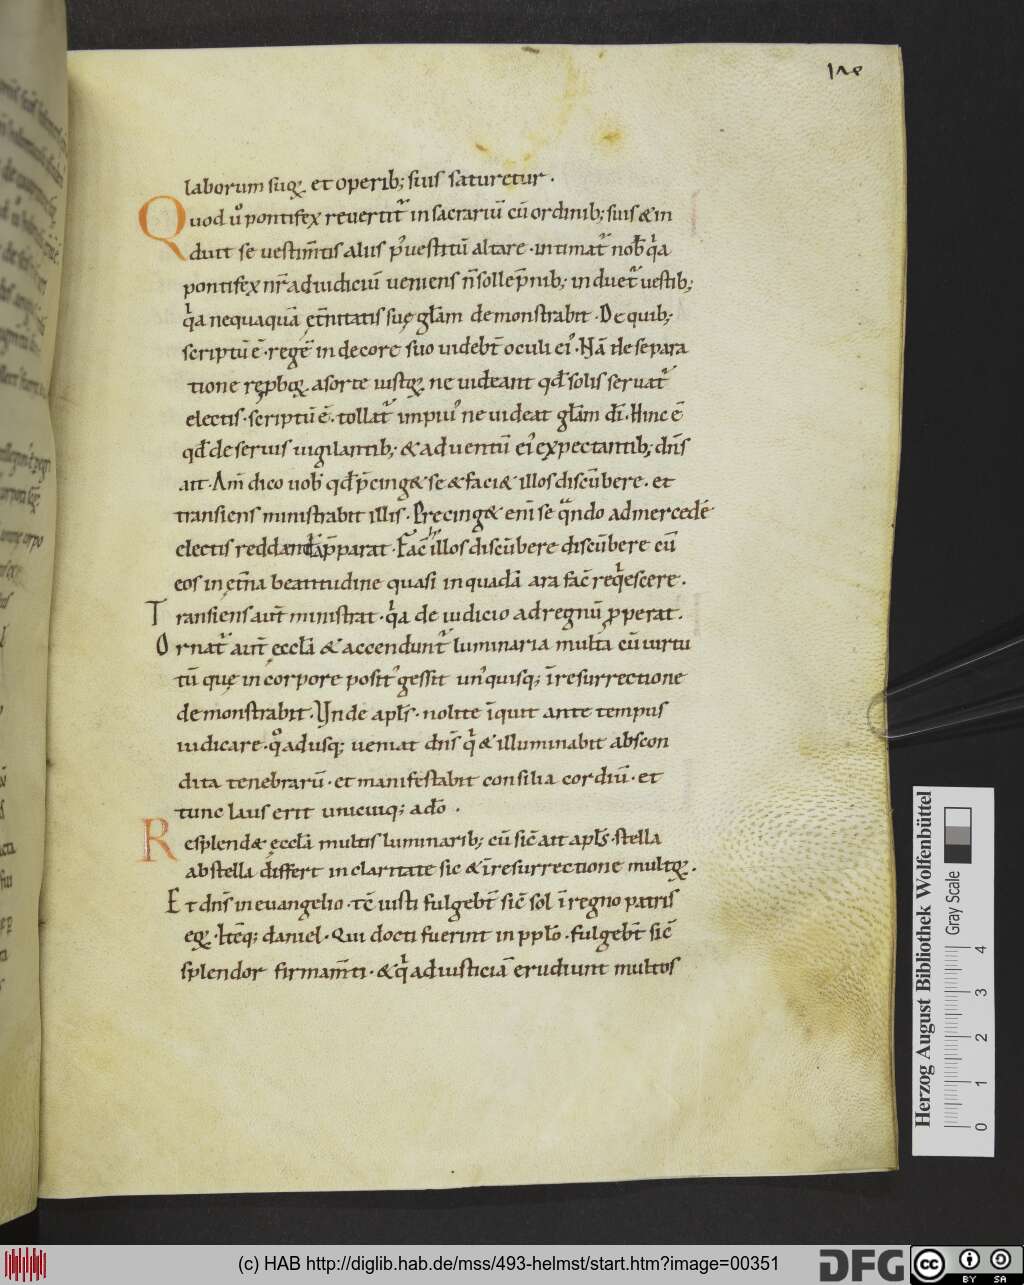 178
laborum suoꝝ et operib; suis saturetur.
Quod ů pontifex reuertit᷑ in sacrariū cū ordinib; suis & in
duit se uestim̄tis aliis p᷒ uestitū altare · intimat᷑ nob̄ qͥa
pontifex nr̄ ad iudiciū ueniens n̄ sollep̄nib; induet᷑ uestib;
qͥa nequaquā ęt̄nitatis suę glām demonstrabit · De quib;
scriptū ē · regē in decore suo uidebt̄ oculi ei᷒ · Nā de separa
tione rep̱boꝝ a sorte iustoꝝ ne uideant qd̄ solis seruat᷑
electis · scriptū ē · tollat᷑ impiu᷒ ne uideat glām dī · Hinc ē
qd̄ de seruis uigilantib; & aduentū ei᷒ expectantib; dn̄s
ait · Am̄ dico uob̄ qd̄ p̄cing& se & faci& illos discūbere · et
transiens ministrabit illis · Precing& eni se qͣndo ad mercedē
electis reddandā p̄parat · Fac̄ illos discūbere discūbere cū
eos in ęt̄na beatitudine quasi in quadā ara fac̄ reqͥescere ·
Transiens aut̄ ministrat · qͥa de iudicio ad regnū ꝓperat.
Ornat᷑ aut̄ ęccl̄a & accendunt᷑ luminaria multa cū uirtu
tū quę in corpore posit᷒ gessit un᷒quisq; ī resurrectione
demonstrabit · Unde apl̄s · nolite īquit ante tempus
iudicare · qͦadusq; ueniat dn̄s qͥ & illuminabit abscon
dita tenebrarū · et manifestabit consilia cordiū · et
tunc laus erit unicuiq; a dō ·
Resplend& ęccl̄a multis luminarib; cū sic̄ ait apl̄s · stella
ab stella differt in claritate sic & ī resurrectione multoꝝ ·
Et dn̄s in euangelio · tc̄ iusti fulgebt̄ sic̄ sol ī regno patris
eoꝝ · Itēq; daniel · Qui docti fuerint in pplō · fulgebt̄ sic̄
splendor firmam̄ti · & qͥ ad iusticiā erudiunt multos
Herzog August Bibliothek Wolfenbüttel
Gray Scale
0 1 2 3 4
(c) HAB http://diglib.hab.de/mss/493-helmst/start.htm?image=00351
DFG
cc
BY SA